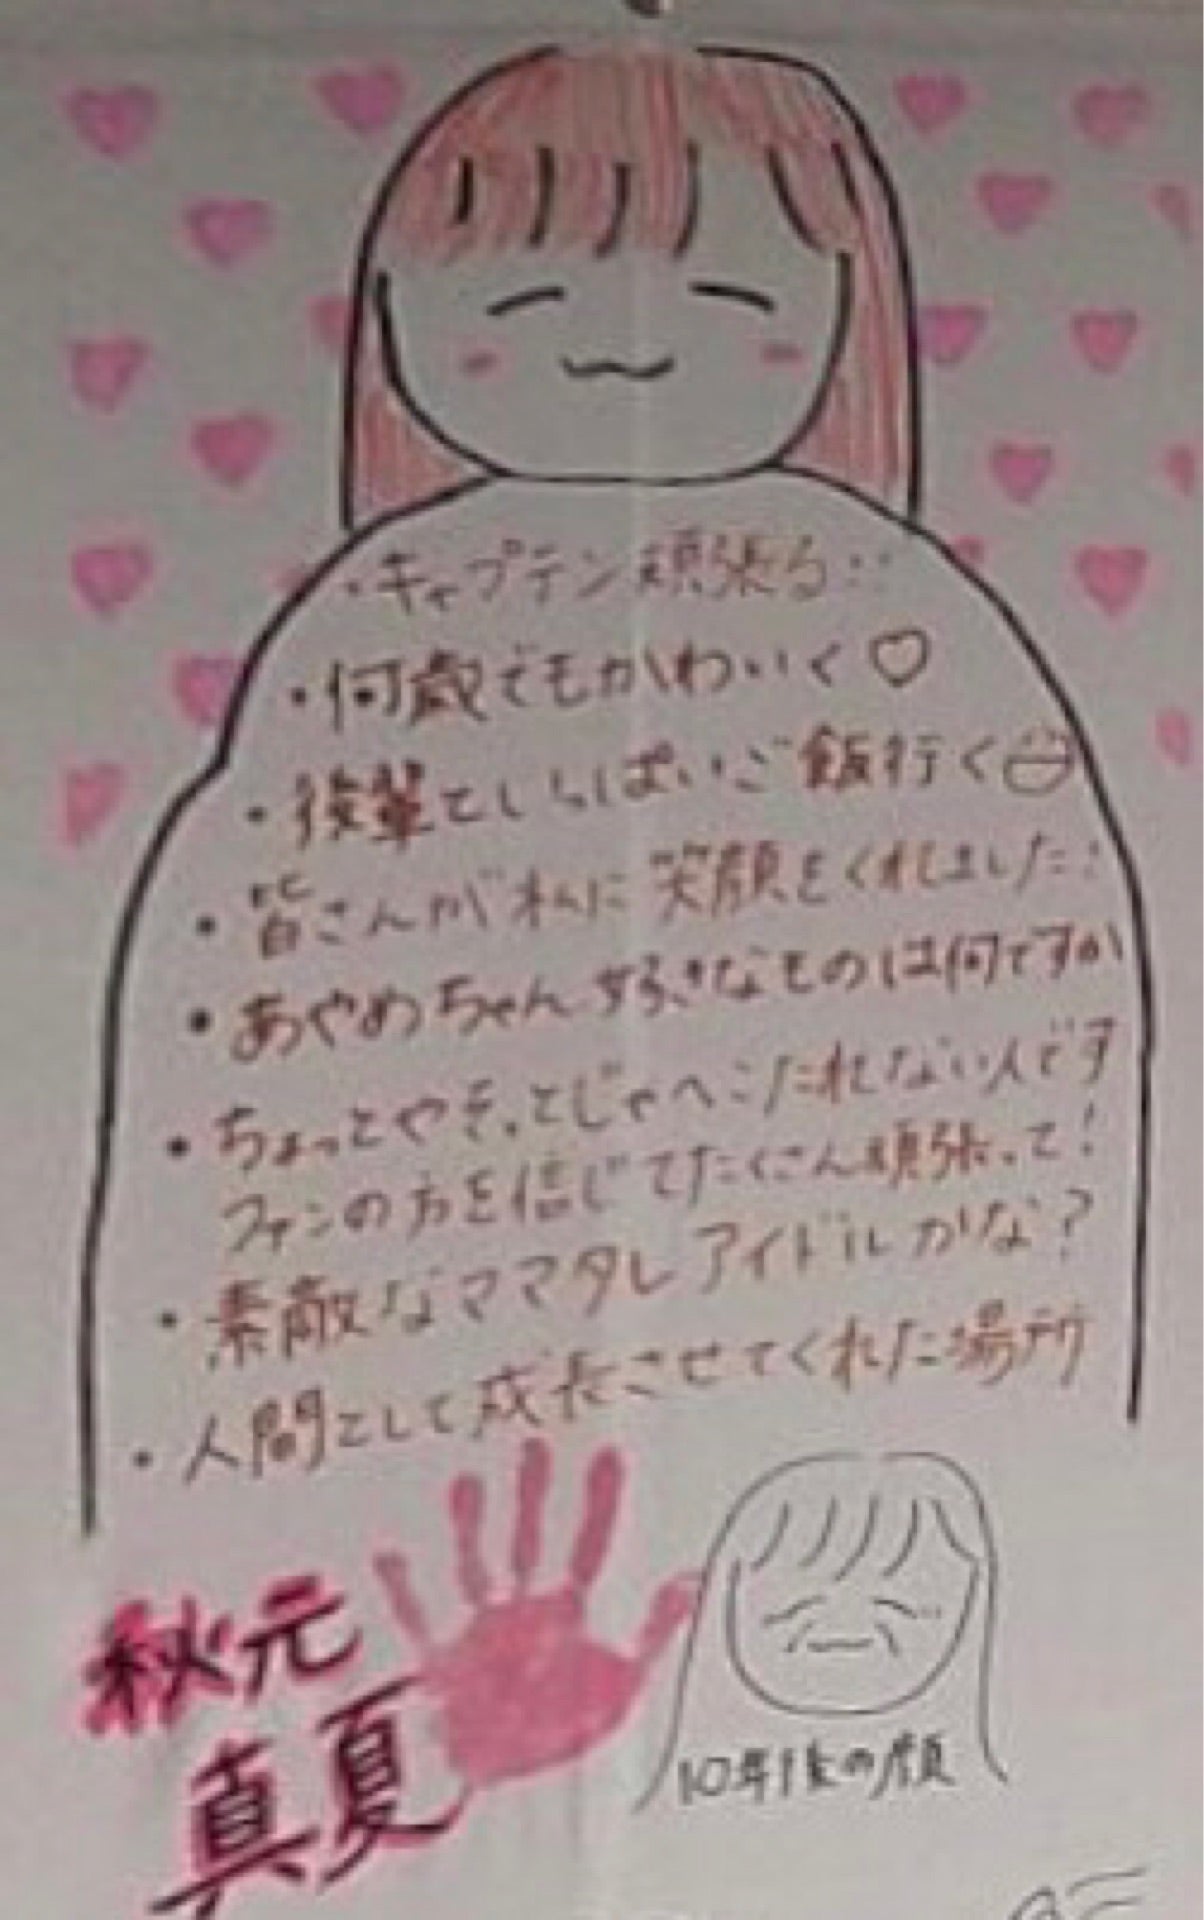 ・キャプテン頑張る
・何歳でもかわいく♡
・後輩といっぱいご飯行く
・皆さんが私に笑顔をくれました
・あやめちゃん好きなものは何ですか
・ちょっとやそっとじゃへこたれない人です
ファンの方を信じてたくさん頑張って!
・素敵なママタレアイドルかな?
・人間として成長させてくれた場所
秋元
真夏
10年後の顔